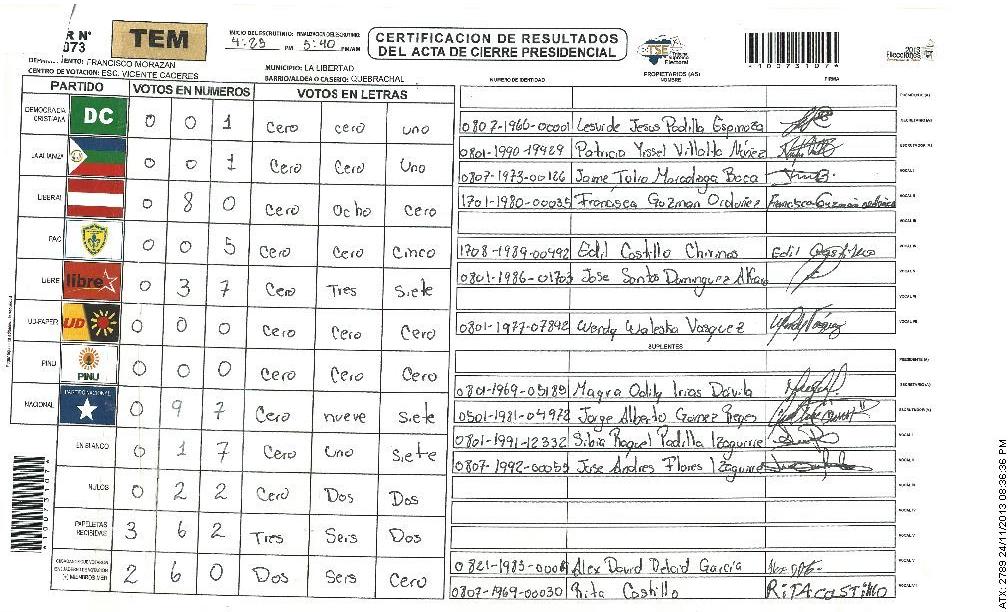 R N°
073
TEM
INICIO DEL ESCRUTINIO: FINALIZACION DEL ESCRUTINIO:
4:29 PM 5:40 PM/AM
CERTIFICACION DE RESULTADOS
DEL ACTA DE CIERRE PRESIDENCIAL
TSE Tribunal Supremo Electoral
*10073107*
2013
Elecciones
FRANCISCO MORAZAN
MUNICIPIO: LA LIBERTAD
CENTRO DE VOTACION: ESC. VICENTE CACERES
BARRIO/ALDEA O CASERIO: QUEBRACHAL
NUMERO DE IDENTIDAD
PROPIETARIOS (AS)
NOMBRE
FIRMA
PARTIDO VOTOS EN NUMEROS VOTOS EN LETRAS
DEMOCRACIA CRISTIANA DC 0 0 1 Cero cero uno
LA ALIANZA 0 0 1 Cero Cero Uno
LIBERAL 0 8 0 Cero Ocho cero
PAC 0 0 5 Cero Cero Cinco
LIBRE libre 0 3 7 Cero Tres Siete
UD-FAPER UD 0 0 0 Cero Cero Cero
PINU PINU 0 0 0 Cero Cero Cero
NACIONAL PARTIDO NACIONAL 0 9 7 Cero nueve Siete
EN BLANCO 0 1 7 Cero uno Siete
NULOS 0 2 2 Cero Dos Dos
PAPELETAS RECIBIDAS 3 6 2 Tres Seis Dos
2 6 0 Dos Seis Cero
PRESIDENTE (A)
0807-1966-00001 Lesvide Jesus Padilla Espinoza SECRETARIO (A)
0801-1990-19429 Patricia Yissel Villalta Núñez ESCRUTADOR (A)
0807-1973-00126 Jaime Tulio Boca VOCAL I
1701-1980-00035 Francisca Guzman Ordoñez Francisca Guzmán VOCAL II
VOCAL III
1708-1989-00492 Edil Costillo Chirinos Edil VOCAL IV
0801-1986-01703 Jose Santo Dominguez Alfaro VOCAL V
VOCAL VI
0801-1977-07892 Wendy Waleska Vasquez Wendy Vasquez VOCAL VII
SUPLENTES
PRESIDENTE (A)
0801-1969-05189 Magra Odily Irias Davila SECRETARIO (A)
0501-1981-04972 Jorge Alberto Gomez Reyes ESCRUTADOR (A)
0801-1991-12332 Silvia Raquel Padilla Izaguirre VOCAL I
0807-1992-00055 Jose Andres Flores Izaguirre VOCAL II
VOCAL III
VOCAL IV
VOCAL V
Alex David Garcia VOCAL VI
0807-1969-00030 Rita Castillo RITA CASTILLO VOCAL VII
*10073107*
ATX: 2789 24/11/2013 08:36:36 PM